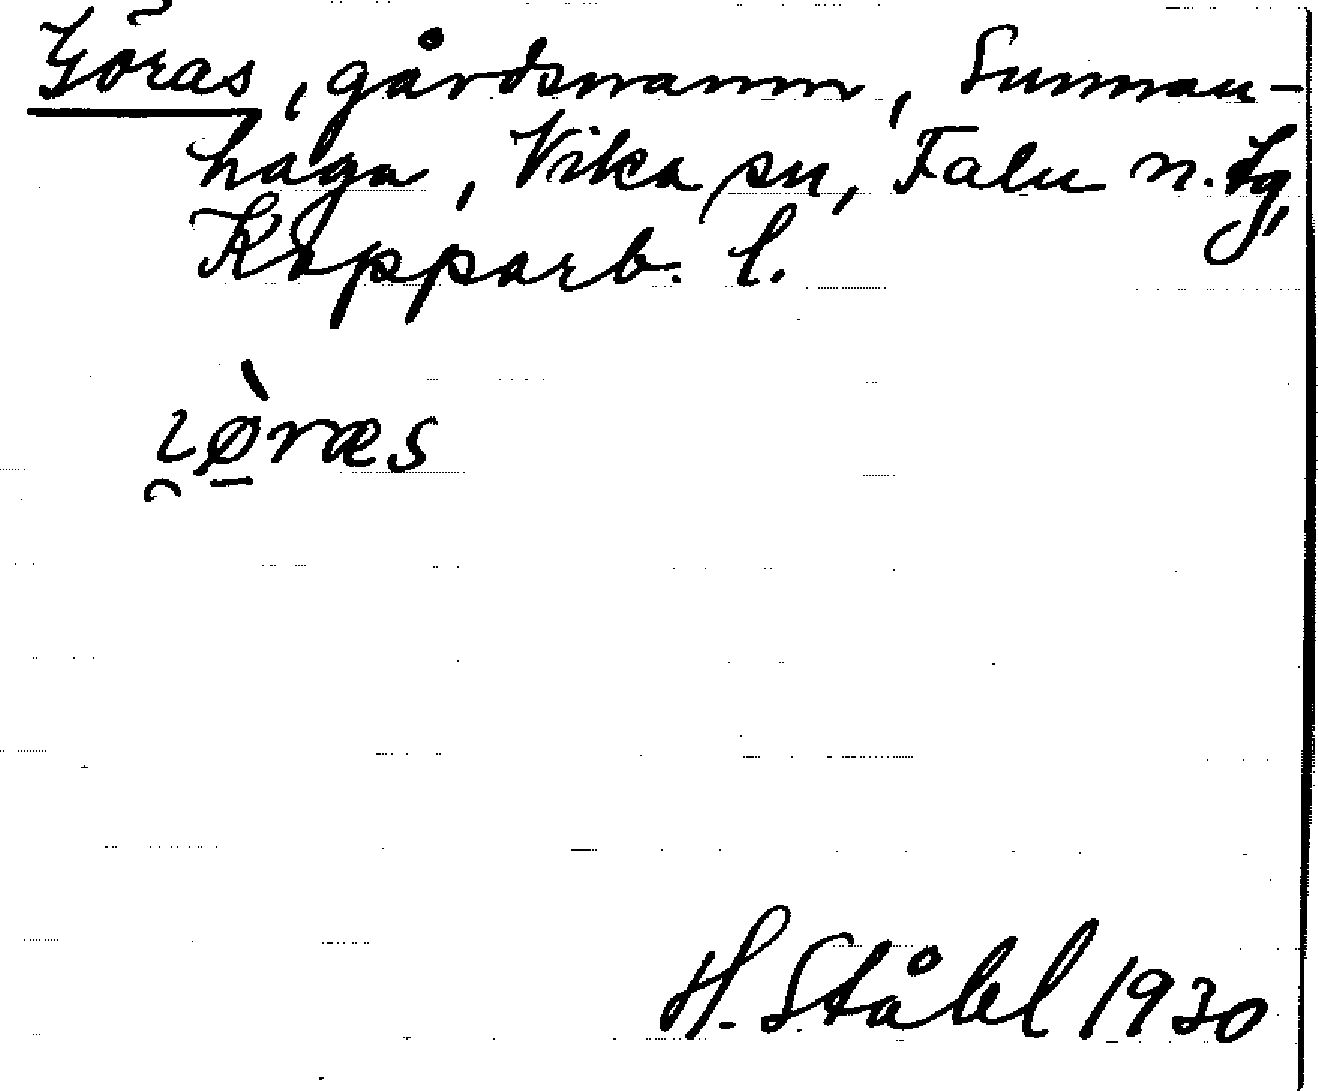 Göras, gårdsnamn, Sunnan-
haga, Vika sn, Falu n. tg,
Kopparb. l.
ɩø̀ræs
H. Ståhl 1930